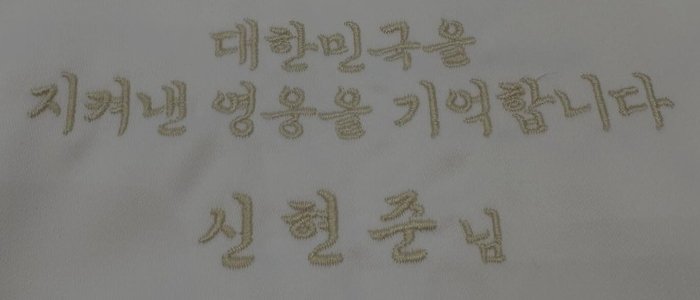 대한민국을
지켜낸 영웅을 기억합니다
신현준님